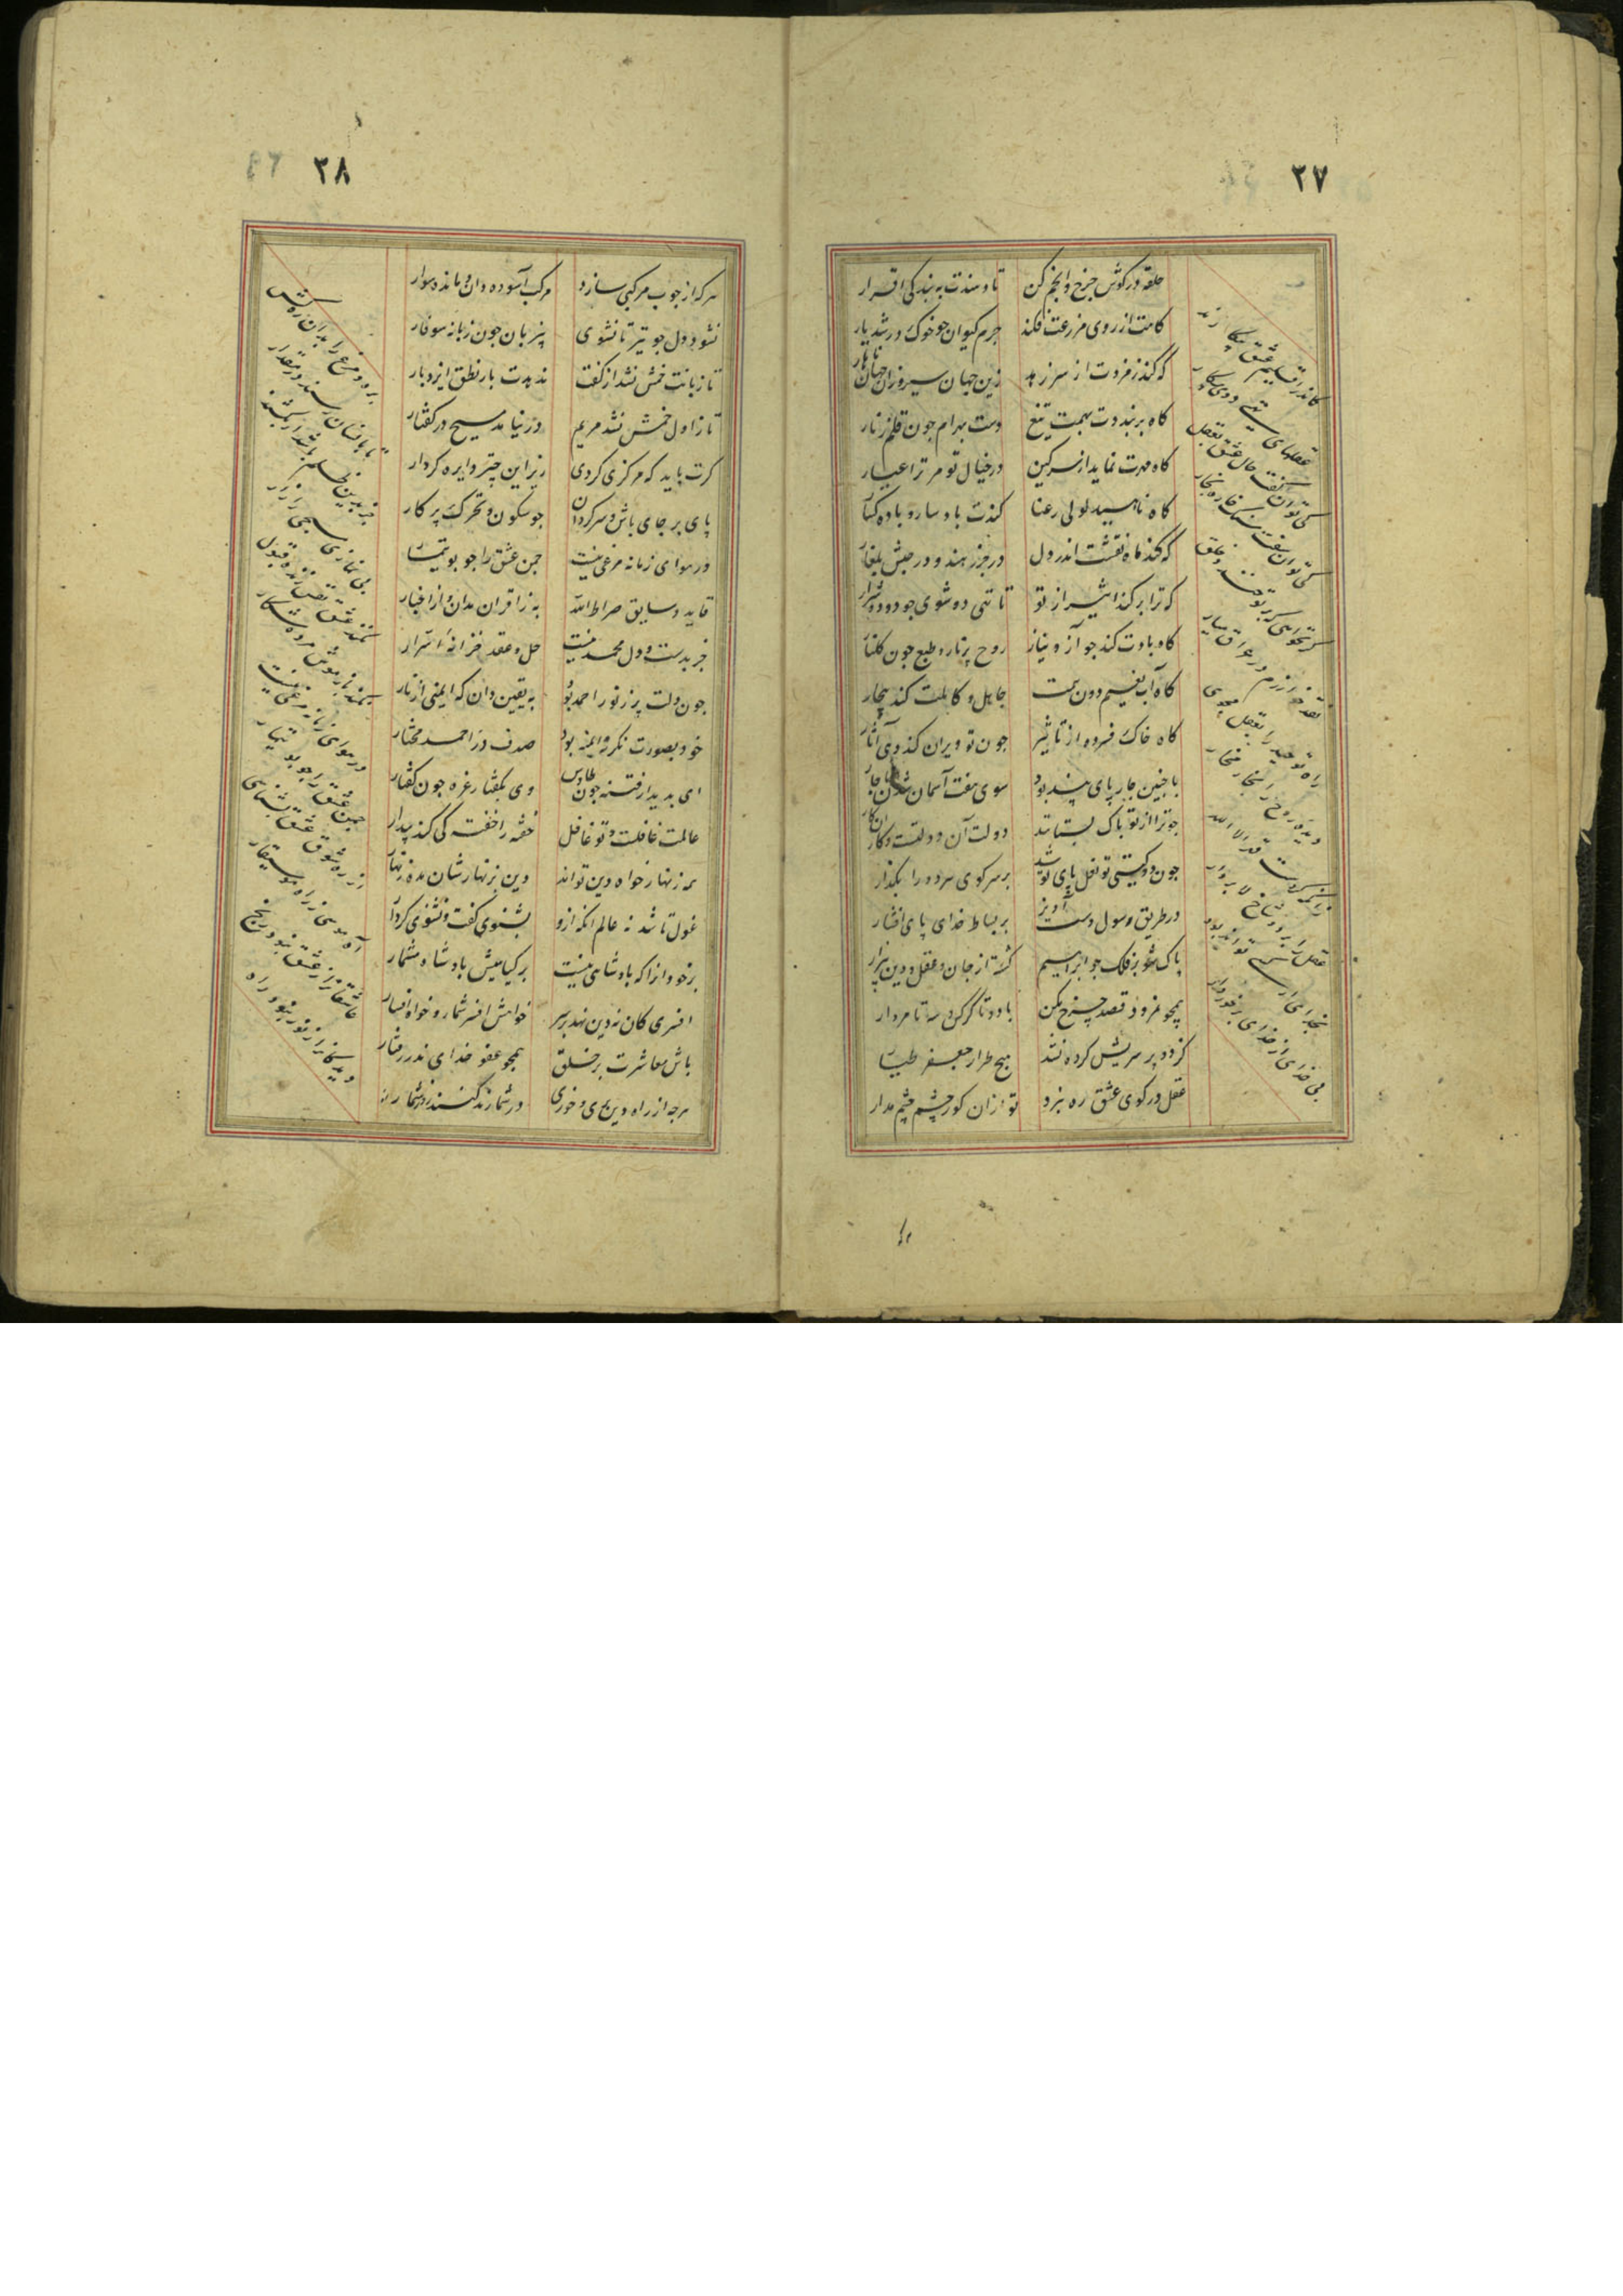 ۲۷
حلقه در گوش چرخ و انجم کن تا دهندت به بندگی اقرار
کاهت از روی مزرعت فکند جرم کیوان چو خوک در شدیار
که کند زمزدت از سر زهد زین جهان سیر وزان جهان
گاه بر بنددت بهمت تیغ دست بهرام چون قلم زنار
گاه مهرت نماید از سر کین در خیال تو مر ترا
گاه ناهید لولی رعنا کندت باد سار و باده گسار
که کند ماه نقشت اندر دل در خزر هند و در حبش بلغار
که ترا بر کند اثیر از تو تا تهی ده شوی چو دود شرار
گاه بادت کند چو آز و نیاز روح پر نار و طبع چون گلنار
گاه آب دون همت جاهل و کاهلت کند
گاه خاک فسرده از تاثیر چون تو ویران کند دهی آثار
با چنین چارپای بند بود سوی هفت آسمان شدن
چو ترا از تو پاک بستانند دولت آن دولتست و کار آن کار
چون دو گیتی دو نعل پای تو شد بر سر کوی هر دو را بگذار
در طریق رسول دست آویز بر بساط خدای پای افشار
پاک شو بر فلک چو ابراهیم گشته از جان و عقل و دین بیزار
همچو نمرود قصد چرخ مکن با دو تا کرکس و دو تا مردار
کز دو پر سریش کرده نشد هیچ طرار جعفر طیار
عقل در کوی عشق ره نبرد تو از آن کور چشم چشم مدار
کاندر اقلیم عشق بیکارند
عقلهای تهی رو پر کار
کی توان گفت حال عشق بعقل
کی توان سفت سنگ خاره بخار
گر نخواهی که بر تو خندد خلق
نقد خوارزم در عراق میار
راه توحید را بعقل مجوی
دیده روح را بخار مخار
زانکه کردست قهر الا الله
عقل را بر دو شاخ لا بردار
بخدای ار کسی تواند بود
بی خدای از خدای برخوردار
۲۸
هر که از چوب مرکبی سازد مرکب آسوده دان و مانده سوار
نشود دل چو تیر تا نشوی بیزبان چون زبانه سوفار
تا زبانت خمش نشد از گفت ندهدت بار نطق ایزد بار
تا ز اول خمش نشد مریم در نیامد مسیح در گفتار
گرت باید که مرکزی گردی زیر این چتر دایره کردار
پای بر جای باش و سرگردان چو سکون و تحرک پرگار
در هوای زمانه مرغی نیست چمن عشق را چو بوتیمار
قاید و سایق صراط الله به ز قرآن مدان و از اخبار
جز بدست و دل محمد نیست حل و عقد خزانه اسرار
چون دلت پر ز نور احمد بود به یقین دان که ایمنی از نار
خود بصورت نگر که آمنه بود صدف در احمد مختار
ای بدیدار فتنه چون طاوس وی بگفتار غره چون کفتار
عالمت غافلست و تو غافل خفته را خفته کی کند بیدار
همه زنهار خواه دین تواند دین بزنهارشان مده زنهار
غول باشد نه عالم آنکه ازو بشنوی گفت و نشنوی کردار
بر خود آنرا که پادشاهی نیست بر گیاهیش پادشاه شمار
افسری کان نه دین نهد بر سر خواهش افسر شمار و خواه افسار
باش معاشرت بر خلق همچو عفو خدای
هرچه از راه دین بری و خوری در شمارند کنند روز شمار
بره و مرغ را بدان ره کش
که بانسان رسند در مقدار
جز بدین ظلم باشد ار بکشد
بی نمازی مسبحی را زار
نکند عشق نفس زنده قبول
نکند باز موش مرده شکار
در هوای زمانه مرغی نیست
چمن عشق را چو بوتیمار
راه عشق
عاشقانرا ز عشق نبود رنج
دیدگانرا ز نور نبود